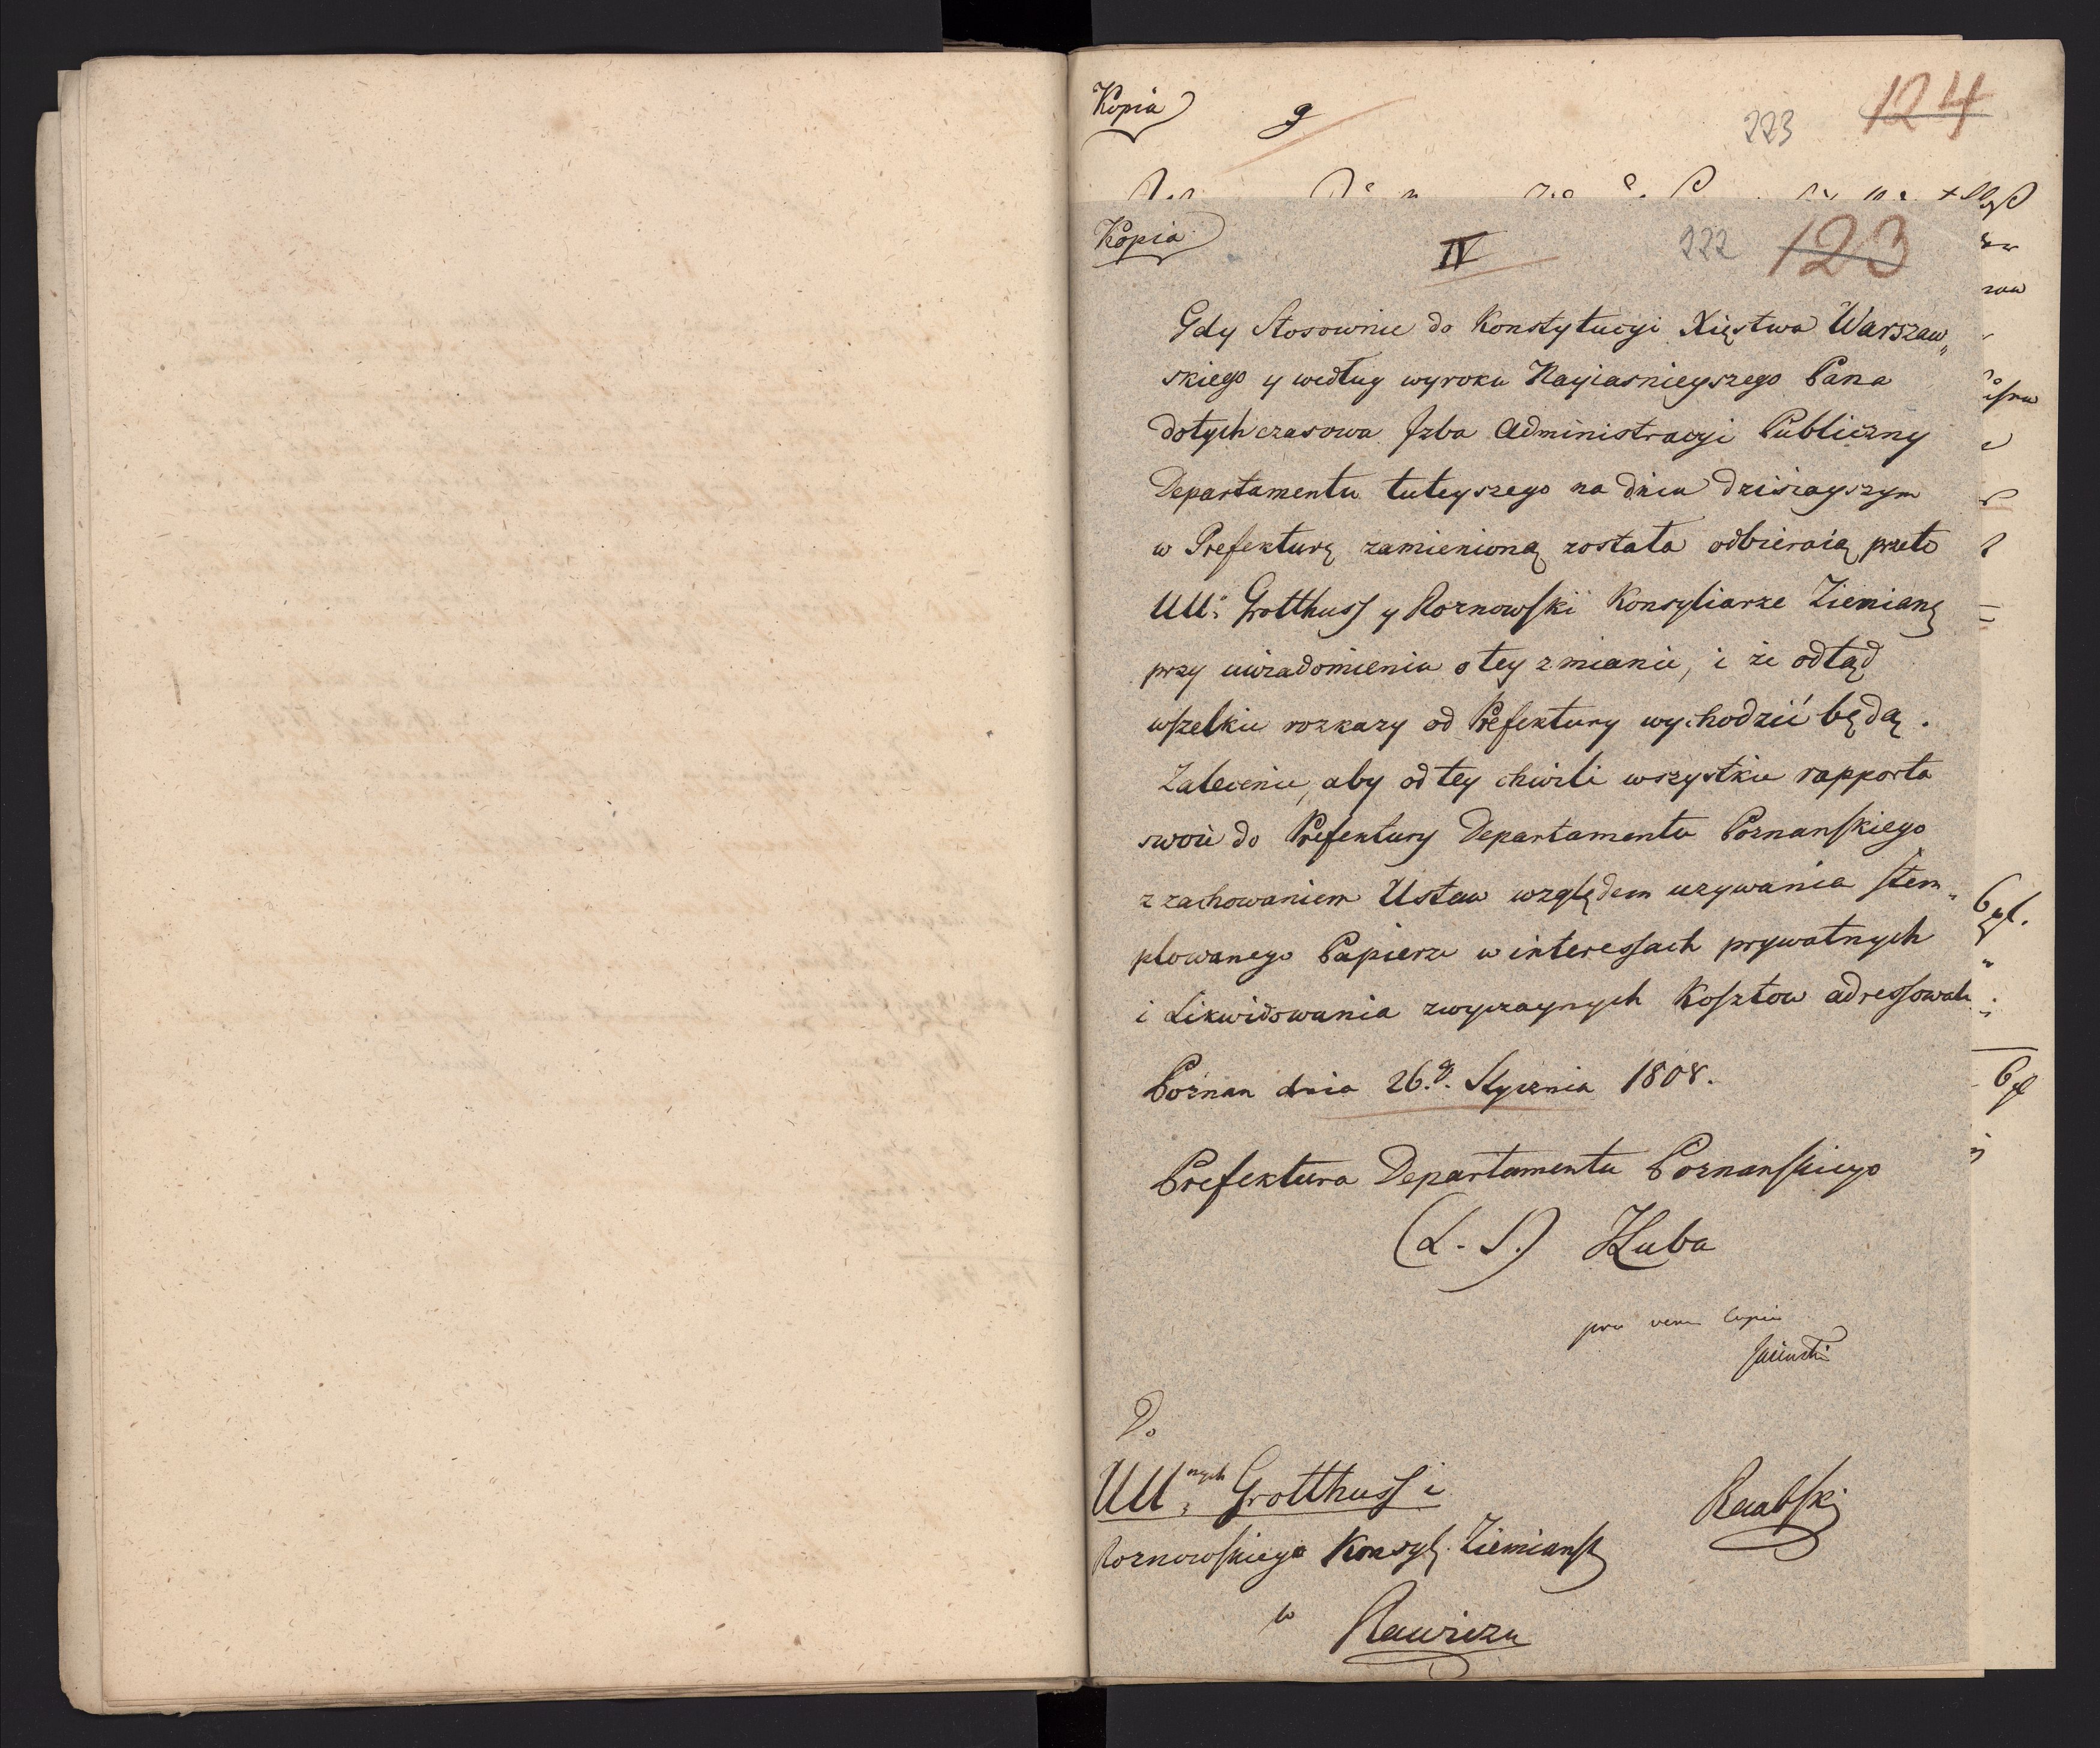 Kopia
9
223
124
Kopia
IV
222
123
Gdy Stosownie do Konstytucyi Xięstwa Warszaw„
skiego y według wyroku Nayiasnieyszego Pana
dotychczasowa Jzba Administracyi Publiczny
Departamentu tuteyszego na dniu dzisiayszym
w Prefekturę zamienioną została odbieraią przeto
UU: Grotthuss y Roznowski Konsyliarze Ziemianſ
przy uwiadomieniu o tey zmianie, i że odtąd
wszelkie rozkazy od Prefektury wychodzić będą.
Zalecenie, aby od tey chwili wszystkie rapporta
swoie do Prefektury Departamentu Poznanskiego
z zachowaniem Ustaw względem uzywania stem„
plowanego Papieru w interessach prywatnych
i Likwidowania zwyczaynych Kosztow adressowali
Poznan dnia 26.g. Stycznia 1808.
Prefektura Departamentu Poznanskiego
(L. S.) Kuba
pro vera Copia
Do
UU:nych Grotthuss i
Roznowskiego Konsyl. Ziemiansk
w Rawiczu